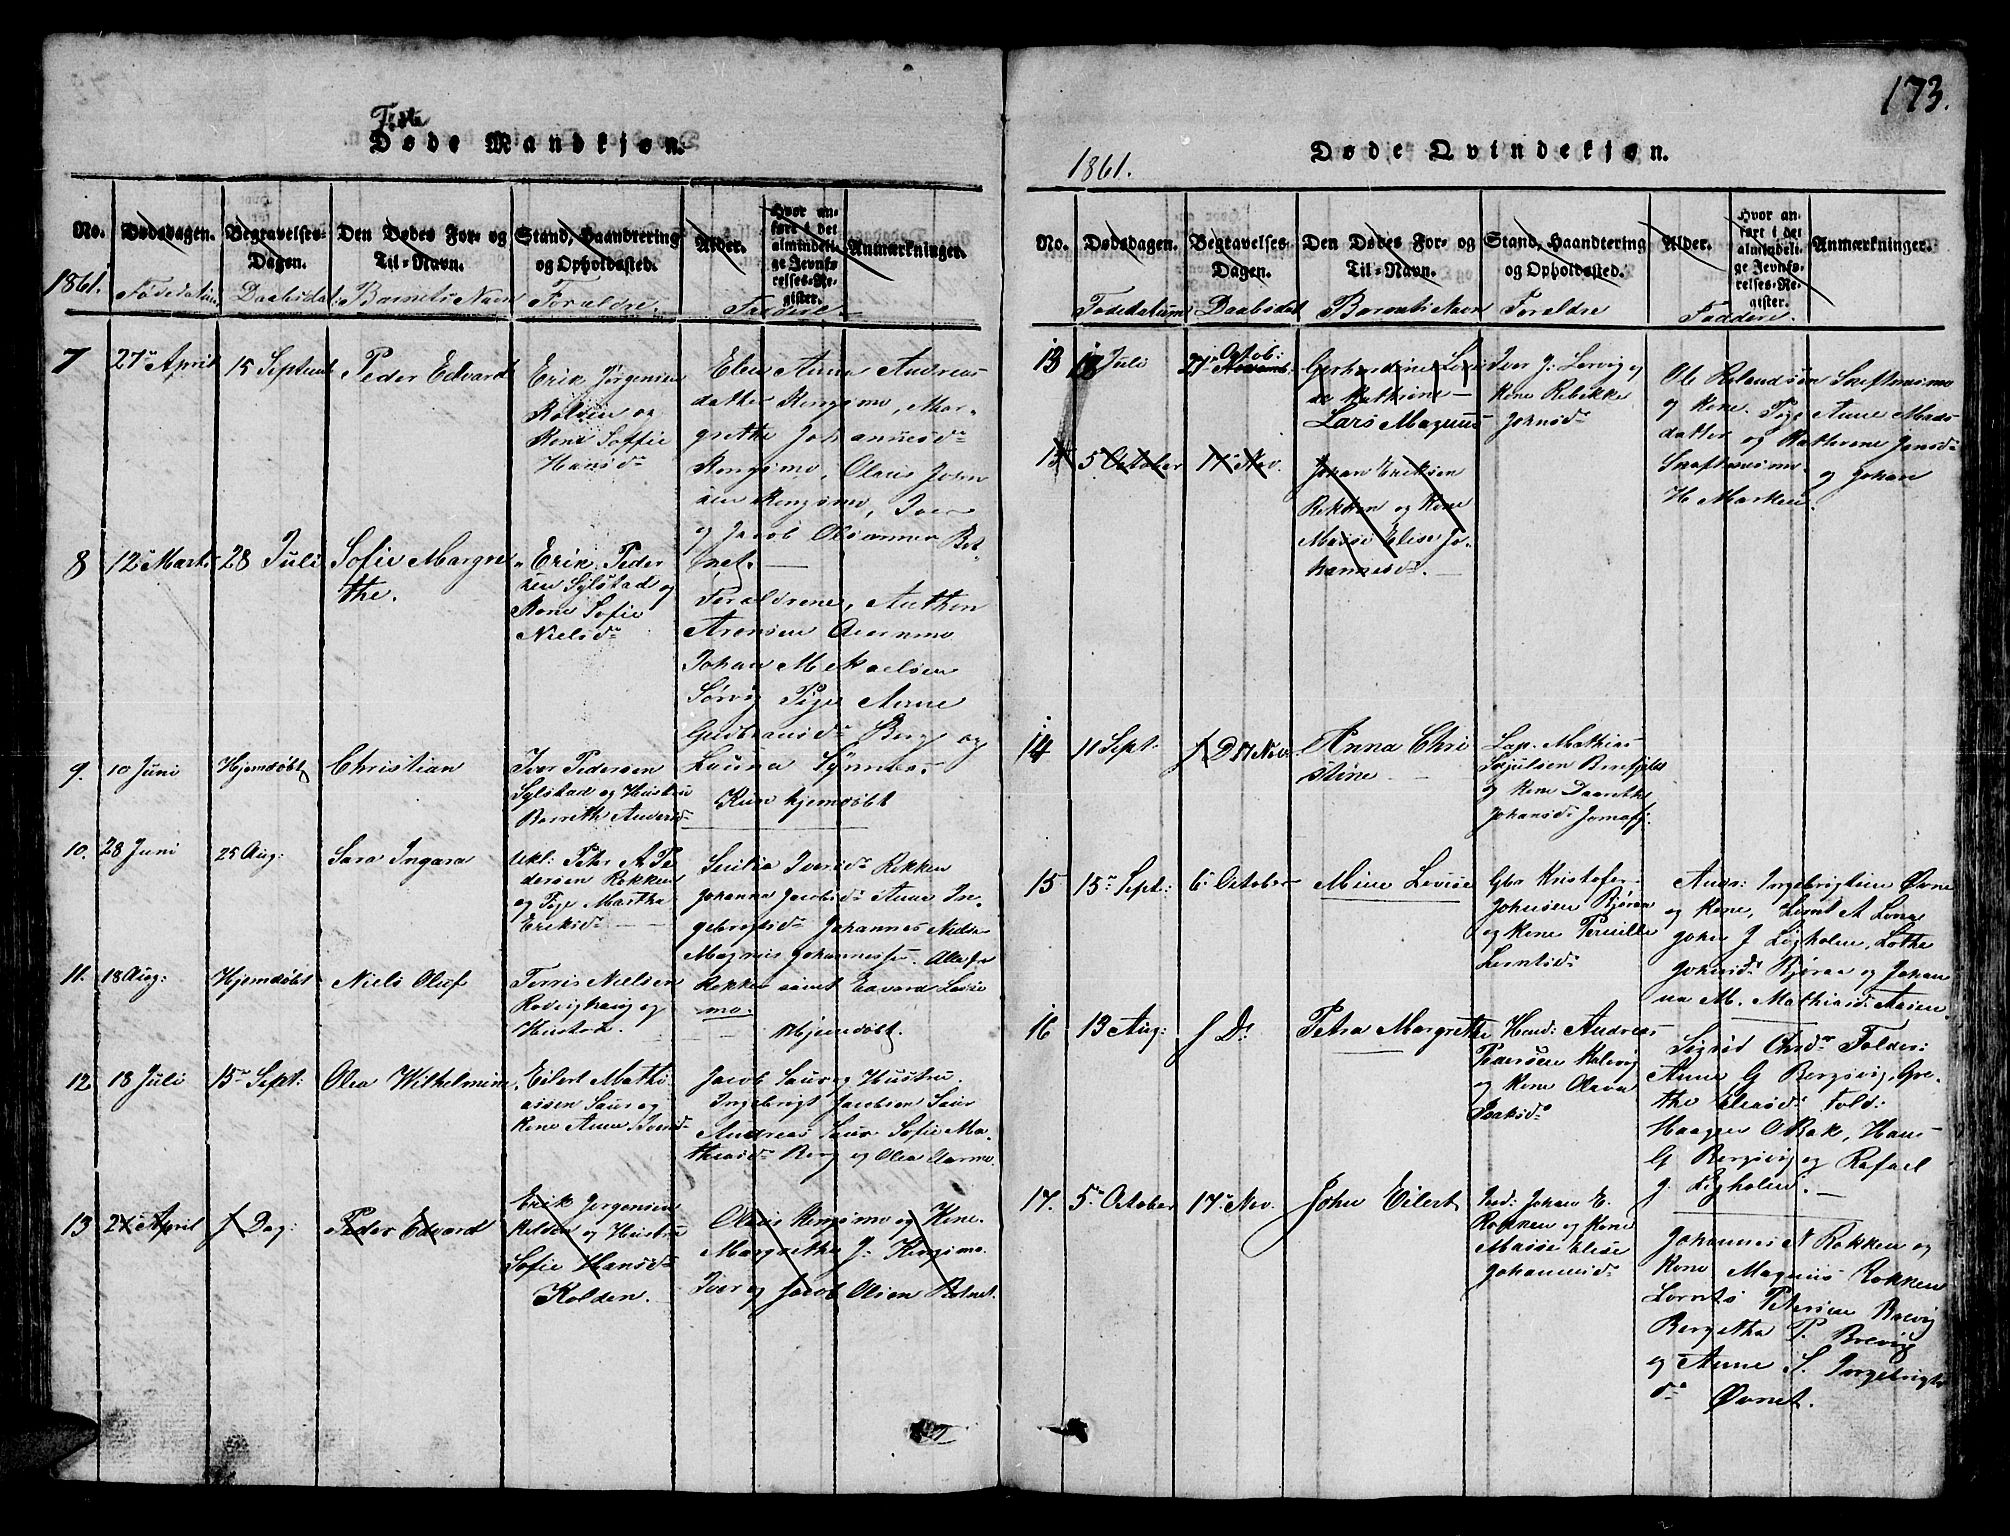 173.
Døde Mandkjøn.
No.
Dødsdagen.
Begravelses-
Dagen.
Den Dødes For- og
Til-Navn.
Stand, Haandtering
og Opholdssted.
Alder.
Hvor an-
ført i det
almindeli-
ge Jevnfø-
relses-Re-
gister.
Anmærkninger.
1861.
Fødedatum
Daabsdat.
Barnets Navn
Forældre.
Faddere.
7
27de April
15 Septemb
Peder Edvard
Erik Jørgensen
Kolden og
Kone Soffie
Hansd.
Elen Anna Andreas-
datter Rengsmo, Mar-
grethe Johannesd.
Rengsmo, Olaus John
sen Rengsmo, Iver
og Jacob Olsen Bot-
net.
8
12 Marts
28 Juli
Sofie Margre
the.
Erik Peder
sen Sylstad og
Kone Sofie
Nielsd.
Forældrene, Anthon
Arensen
Johan Mekaelsen
Sørvig Pige Anne
Gudbransd. Berg og
Launa
9.
10 Juni
Hjemdøbt
Christian
Iver Pedersen
Sylstad og Hustru
Berreth Andersd
Kun hjemdøbt
10.
28 Juni
25 Aug:
Sara Ingara
Uekt: Peter A. Pe
dersen Rokken
og Pige Martha
Eriksd.
Sesilia Iversd. Rokken
Johanna Jacobsd. Anne In-
gebrigtsd. Johannes Nils
Magnus Johannessen.
Rokken samt Edvard
mo.
11.
18 Aug:
Hjemdøbt
Niels Oluf
Torris Nielsen
Rødvighaug og
Hustru.
Hjemdøbt.
12
18 Juli
15de Sept:
Olea Wilhelmine
Eilert Mathi
assen Saur og
Kone Anna Iversd.
Jacob Saur og Hustru,
Ingebrigt Jacobsen Saur
Andreas Saur Sofie Ma-
thiasd. Berg og Olea
13
27 April
f Dag:
Peder Edvard
Erik Jørgensen
Kolden og Hustru
Sofie Hansd.
Kolden.
Olaus Rengsmo og Kone.
Margrethe J. Rengsmo.
Iver og Jacob Olsen Botnet.
1861.
Døde Qvindekjøn.
No.
Dødsdagen.
Begravelses-
Dagen.
Den Dødes For- og
Til-Navn.
Stand, Haandtering
og Opholdssted.
Alder.
Hvor an-
ført i det
almindeli-
ge Jevnfø-
relses-Re-
gister.
Anmærkninger.
Fødedatum
Daabsdat
Barnets Navn
Forældre
Faddere.
13
18 Juli
27de Octob:
Novemb:
Gerhardine Lovi
se Kathrine
Lars Magnus
Iver J. Lervig og
Kone Rebekke
Johnsd.
Ole Rolandsen
og Kone. Pige Anne Mads
datter og Kathrine Jensd.
og Johan
H. Marken.
14
5 October
17 Nov.
Johan Eriksen
Rokken og Kone
Massi Elise Jo-
hannesd.
14
11 Sept:
f D 17 Nov
Anna Chri
stine
Lap. Mathias
og Kone Daarethe
Johansd.
15
15de Sept:
6te October
Mine Levise
Gbr Kristofer
Johnsen Bjøraa
og Kone Pernille
Lerntsd.
Andr: Ingebrigtsen Øvne
og Kone, Lornt A.
John J. Ligholm, Lothe
Johnsd. Bjøraa og Johan
na M. Mathiasd. Aasen.
16
13 Aug:
f D:
Petra Margrethe
Hmd: Andreas
Pedersen Kalvig
og Kone Olava
Isaksd.
Sigrid Chrd. Folder:
Anne G Bergsvig, Gre-
the Eliasd. Fold:
Haagen O Bak, Hans
G Bergsvig og Rafael
J. Ligholm.
17.
5te October
17de Nov.
John Eilert
Ind: Johan E.
Rokken og Kone
Massi Elise
Johannesd.
Johannes N Rokken og
Kone Magnus Rokken
Lornts Petersen Brevig
Bergitha P. Brevig
og Anne S. Ingebrigts
d. Øvnet.